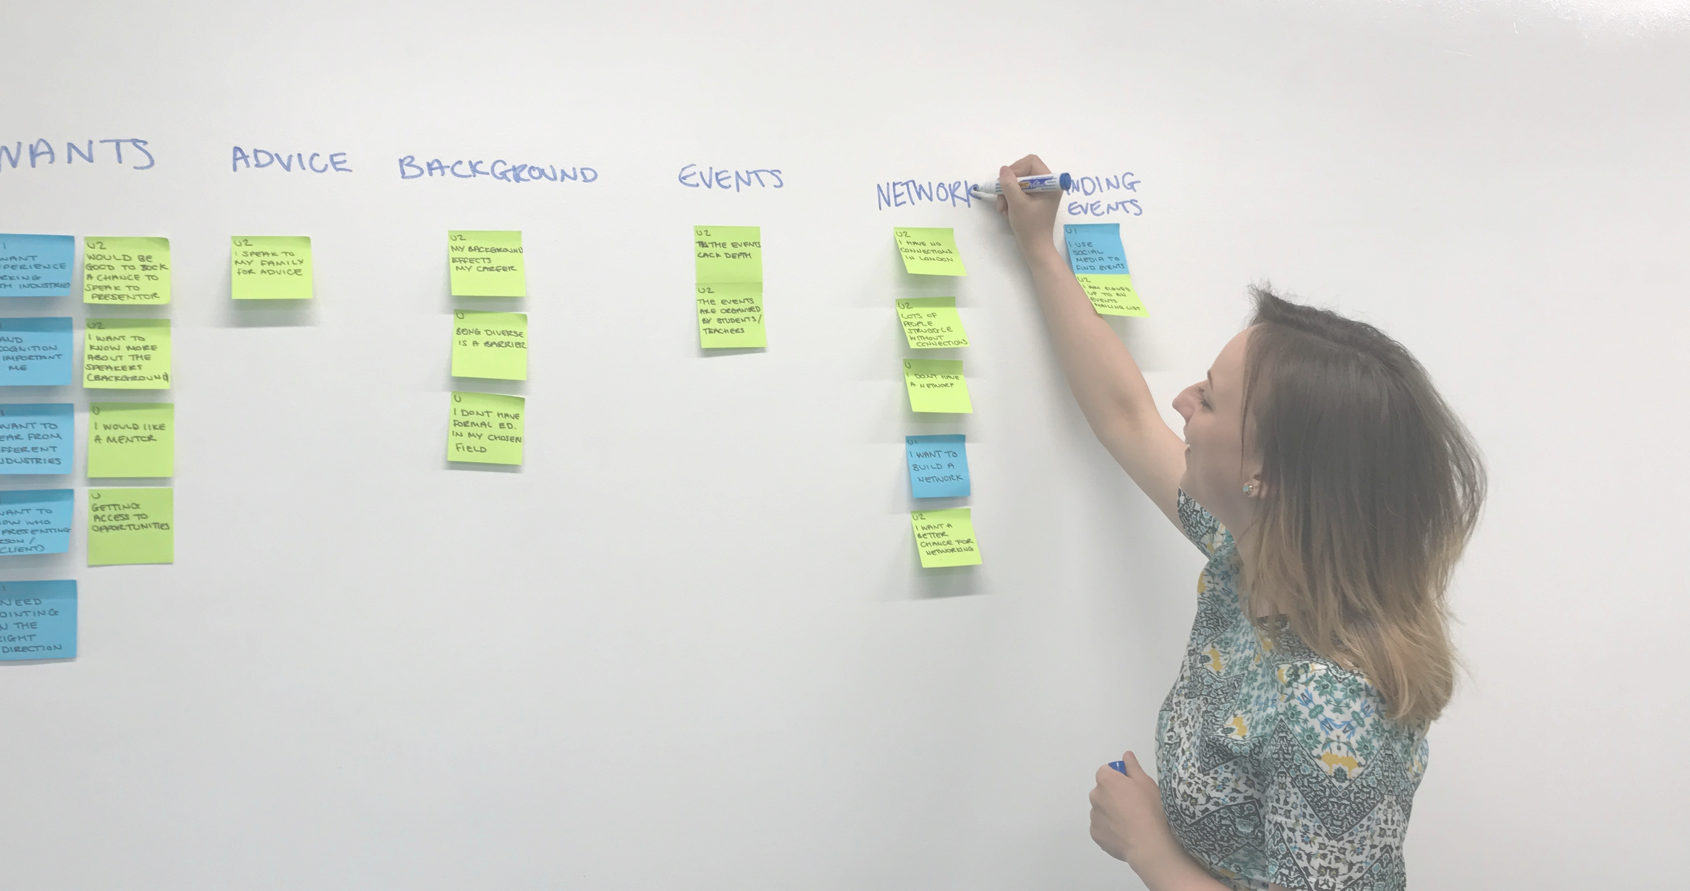 WANTS
WANT
PERIENCE
INDUSTRIES
AND
COGNITION
IMPORTANT
ME
WANT TO
EAR FROM
FFERENT
DUSTRIES
WANT TO
PRESENTING
CLIENT)
NEED
OINTING
N THE
RIGHT
DIRECTION
U2
WOULD BE
GOOD TO BOOK
A CHANCE TO
SPEAK TO
PRESENTOR
U2
I WANT TO
KNOW MORE
ABOUT THE
SPEAKERS
(BACKGROUND)
U
I WOULD LIKE
A MENTOR
U
GETTING
ACCESS TO
OPPORTUNITIES
ADVICE
U2
I SPEAK TO
MY FAMILY
FOR ADVICE
BACKGROUND
U2
MY BACKGROUND
EFFECTS
MY CAREER
U
BEING DIVERSE
IS A BARRIER
U
I DONT HAVE
FORMAL ED.
IN MY CHOSEN
FIELD
EVENTS
U2
THE EVENTS
LACK DEPTH
U2
THE EVENTS
ARE ORGANISED
BY STUDENTS/
TEACHERS
NETWORK
U2
I HAVE NO
CONNECTIONS
IN LONDON
U2
LOTS OF
PEOPLE
STRUGGLE
WITHOUT
CONNECTIONS
U
I DONT HAVE
A NETWORK
U1
I WANT TO
BUILD A
NETWORK
U2
I WANT A
BETTER
CHANCE FOR
NETWORKING
NDING
EVENTS
U1
I USE
SOCIAL
MEDIA TO
FIND EVENTS
U2
I AM SIGNED
UP TO AN
EVENTS
MAILING LIST